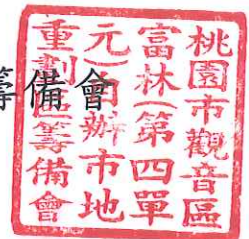 籌備會
桃園市觀音區
富林(第四單
元)自辦市地
重劃區籌備會